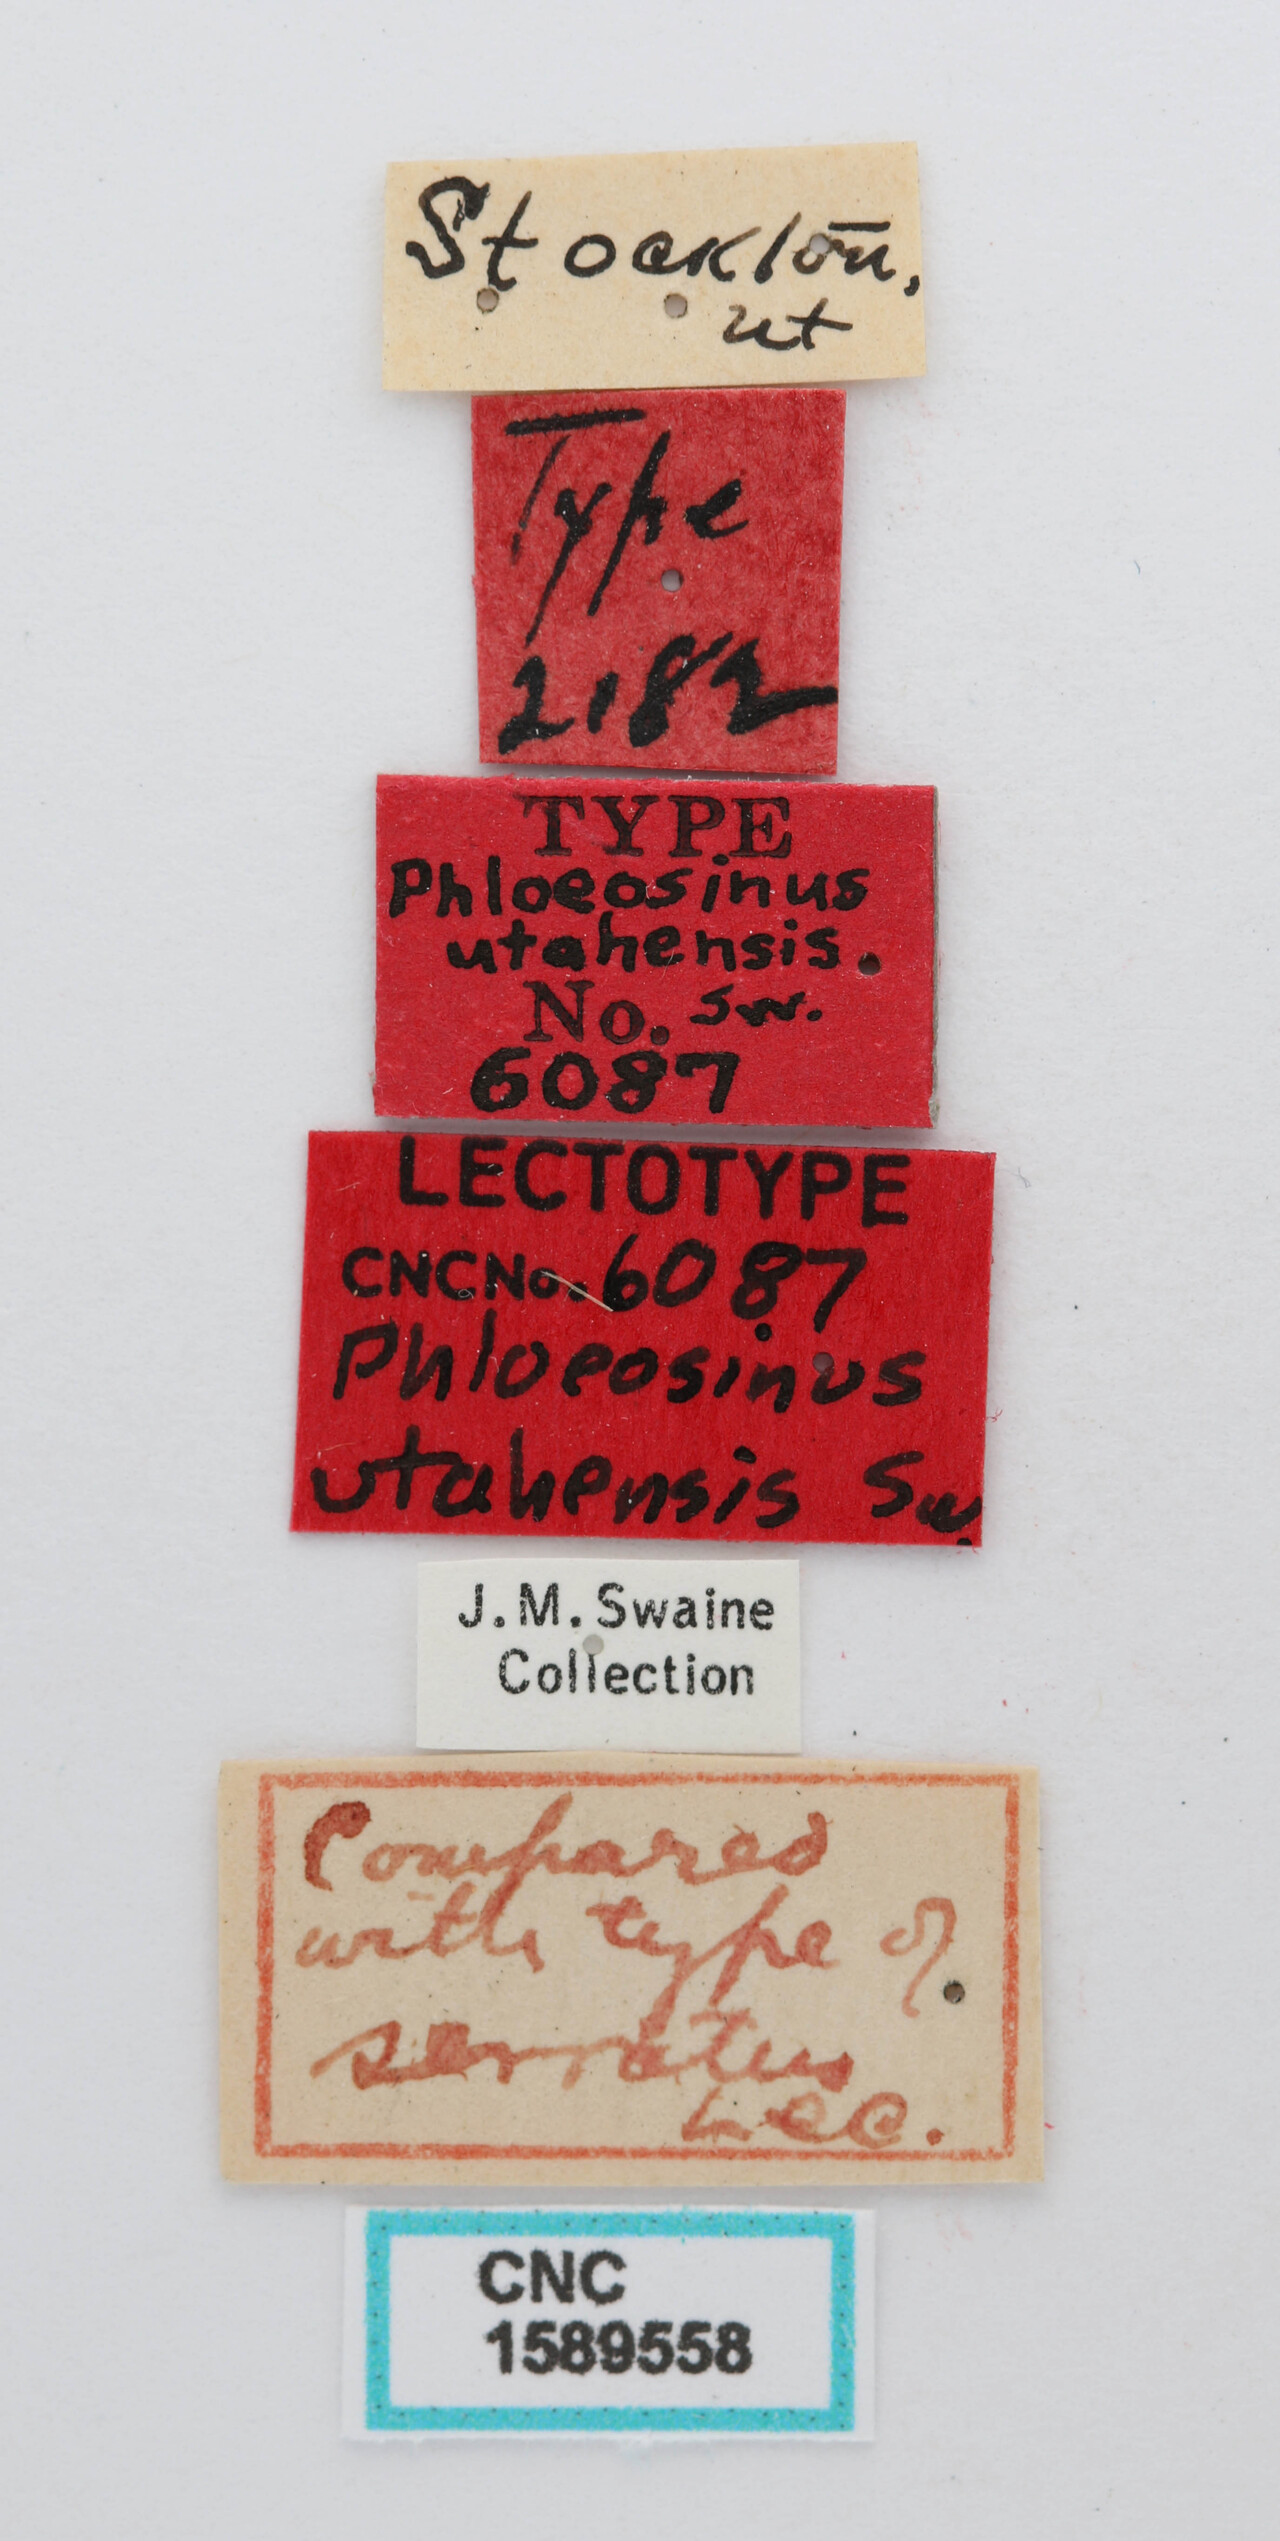 Stockton,
Ut
Type
2182
TYPE
Phloeosinus
utahensis.
No. Sw.
6087
LECTOTYPE
CNC No. 6087
Phloeosinus
utahensis Sw.
J.M. Swaine
Collection
Compared
with type of
serratus
Lec.
CNC
1589558